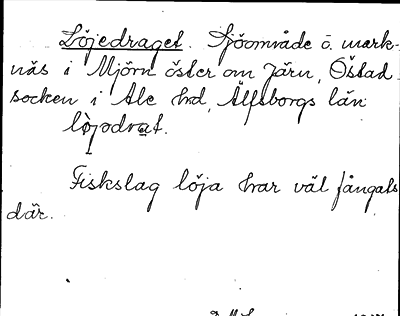 Löjedraget. Sjöområde o. mark-
näs i Mjörn öster om Järn, Östad
socken i Ale hrd, Älfsborgs län
löjodrat.
Fiskslag löja har väl fångats
där.